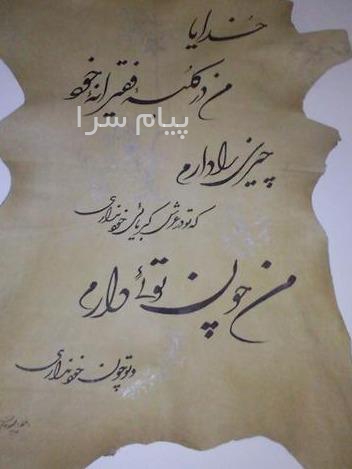 خدایا
من در کلبهٔ فقیرانهٔ خود
پیام سرا
چیزی را دارم
که تو در عرش کبریائی خود نداری
من چون توئی دارم
و تو چون خود نداری